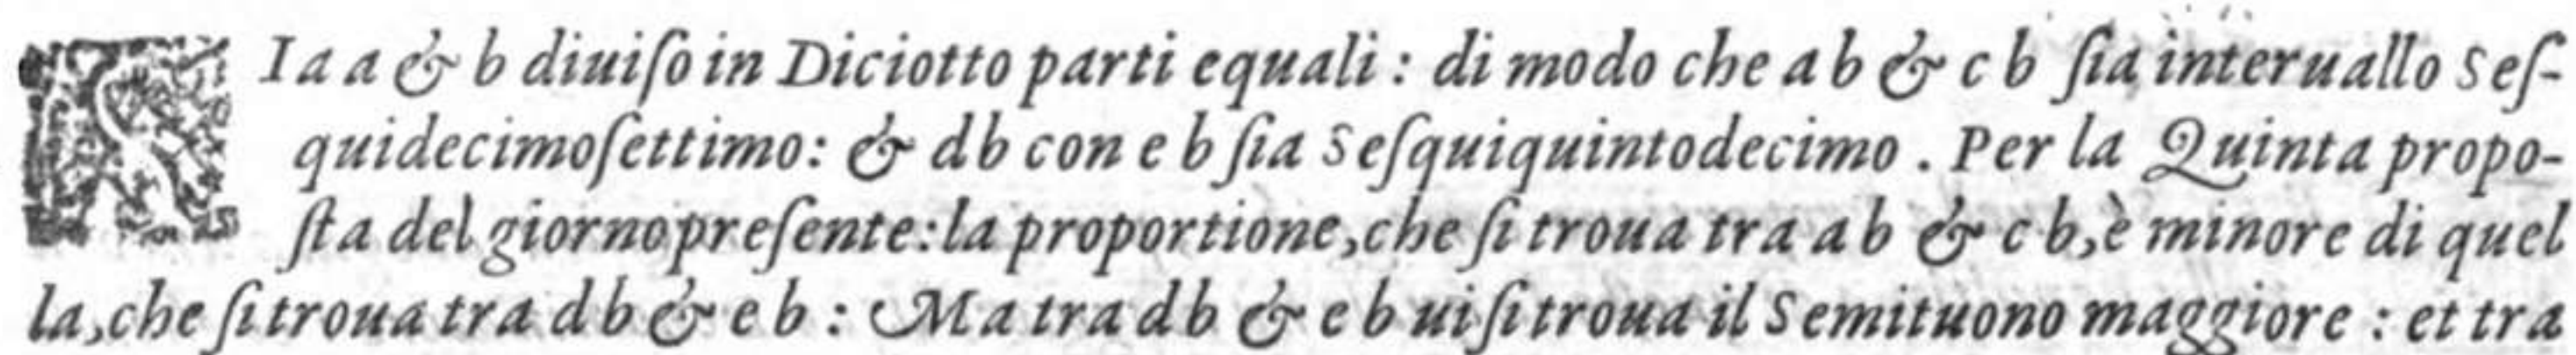 SIa a & b diuiſo in Diciotto parti equali : di modo che a b & c b ſia interuallo Seſ-
quidecimoſettimo: & d b con e b ſia Seſquiquintodecimo . Per la Quinta propo-
ſta del giorno preſente: la proportione, che ſi troua tra a b & c b, è minore di quel
la, che ſi troua tra d b & e b : Ma tra d b & e b ui ſi troua il Semituono maggiore : et tra